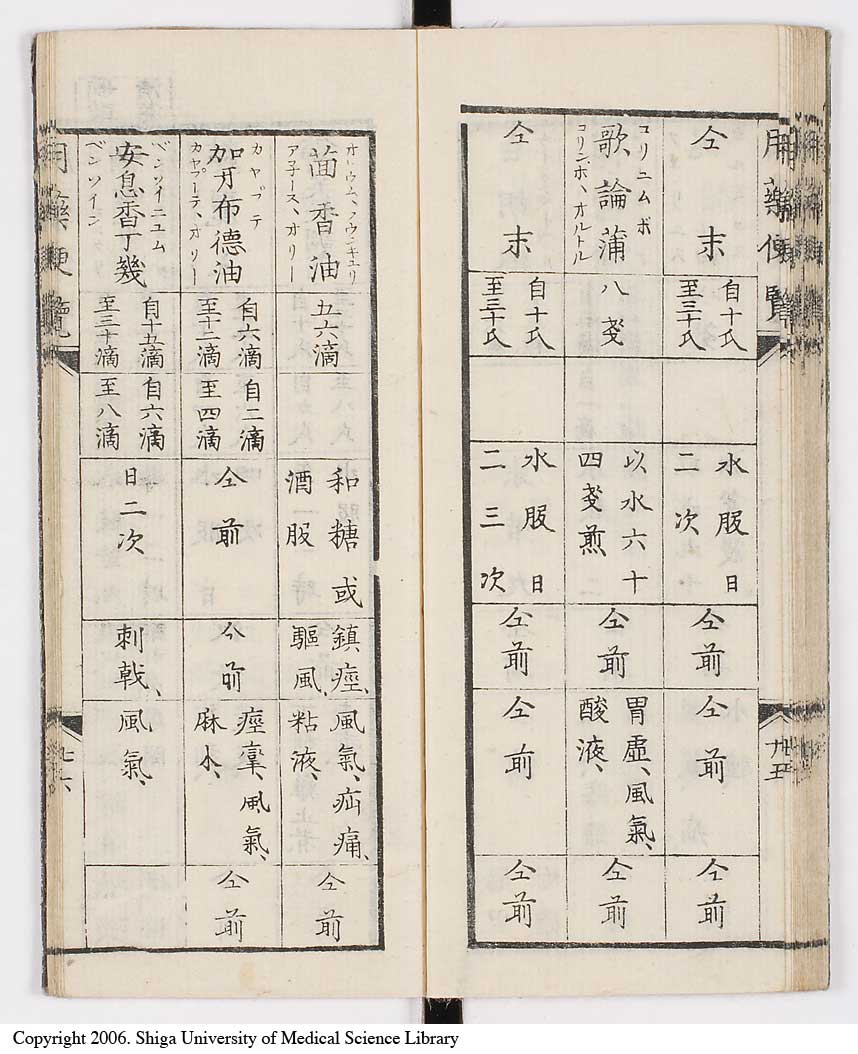 用藥便覽
廾五
仝末
自十氏
至三十氏
水服日
二次
仝前
仝前
仝前
コリニムボ
歌論蒲
コリンボ、オルトル
八戔
以水六十
四戔煎
仝前
胃虛、風氣、
酸液、
仝前
仝末
自十氏
至三十氏
水服日
二三次
仝前
仝前
仝前
茴香油
アネイース、オリー
五六滴
和糖或
酒一服
鎮痙、
驅風、
風氣、疝痛、
粘液、
仝前
カヤプテ
加牙布德油
カヤプーテ、オリー
自六滴
至十二滴
自二滴
至四滴
仝前
仝前
痙攣、風氣、
麻木、
仝前
ベンソイニユム
安息香丁幾
ベンソイン
自十五滴
至三十滴
自六滴
至八滴
日二次
刺戟、
風氣、
用藥便覽
Copyright 2006. Shiga University of Medical Science Library